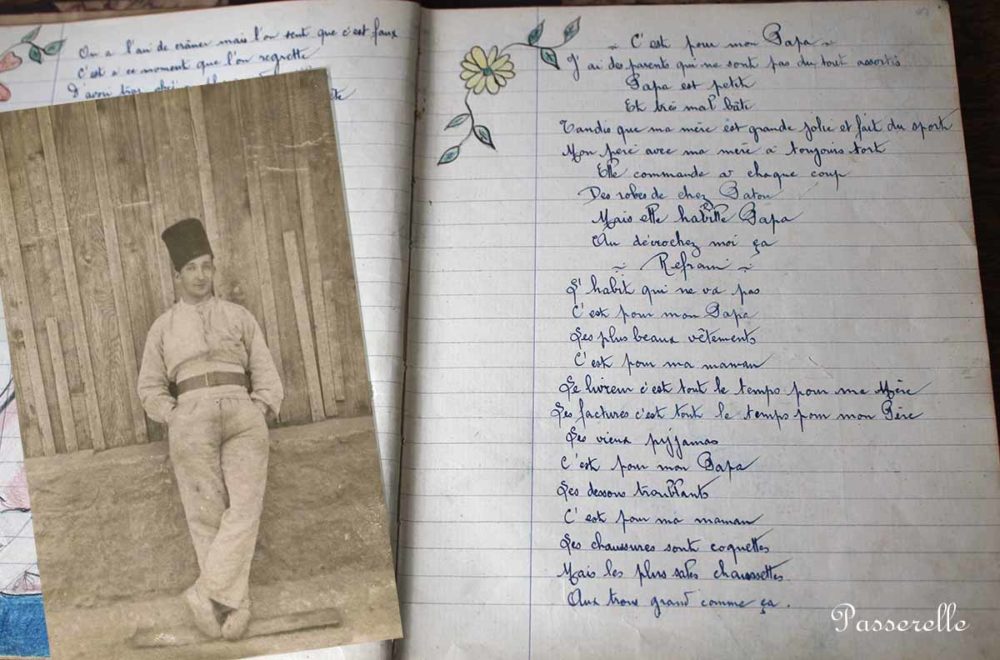 On a l'air de crâner mais l'on sent que c'est faux
C'est a ce moment que l'on regrette
D'avoir trop
~ C'est pour mon Papa ~
J'ai des parents qui ne sont pas du tout assortis
Papa est petit
Et très mal bâti
Tandis que ma mère est grande jolie et fait du sport
Mon père avec ma mère a toujours tort
Elle commande a chaque coup
Des robes de chez Patou
Mais elle habille Papa
Au décrochez moi ça
~ Refrain ~
L'habit qui ne va pas
C'est pour mon Papa
Les plus beaux vêtements
C'est pour ma maman
Le livreur c'est tout le temps pour ma Mère
Les factures c'est tout le temps pour mon Père
Les vieux pyjamas
C'est pour mon Papa
Les dessous troublants
C'est pour ma maman
Les chaussures sont coquettes
Mais les plus sales chaussettes
Aux trous grand comme ça.
Passerelle